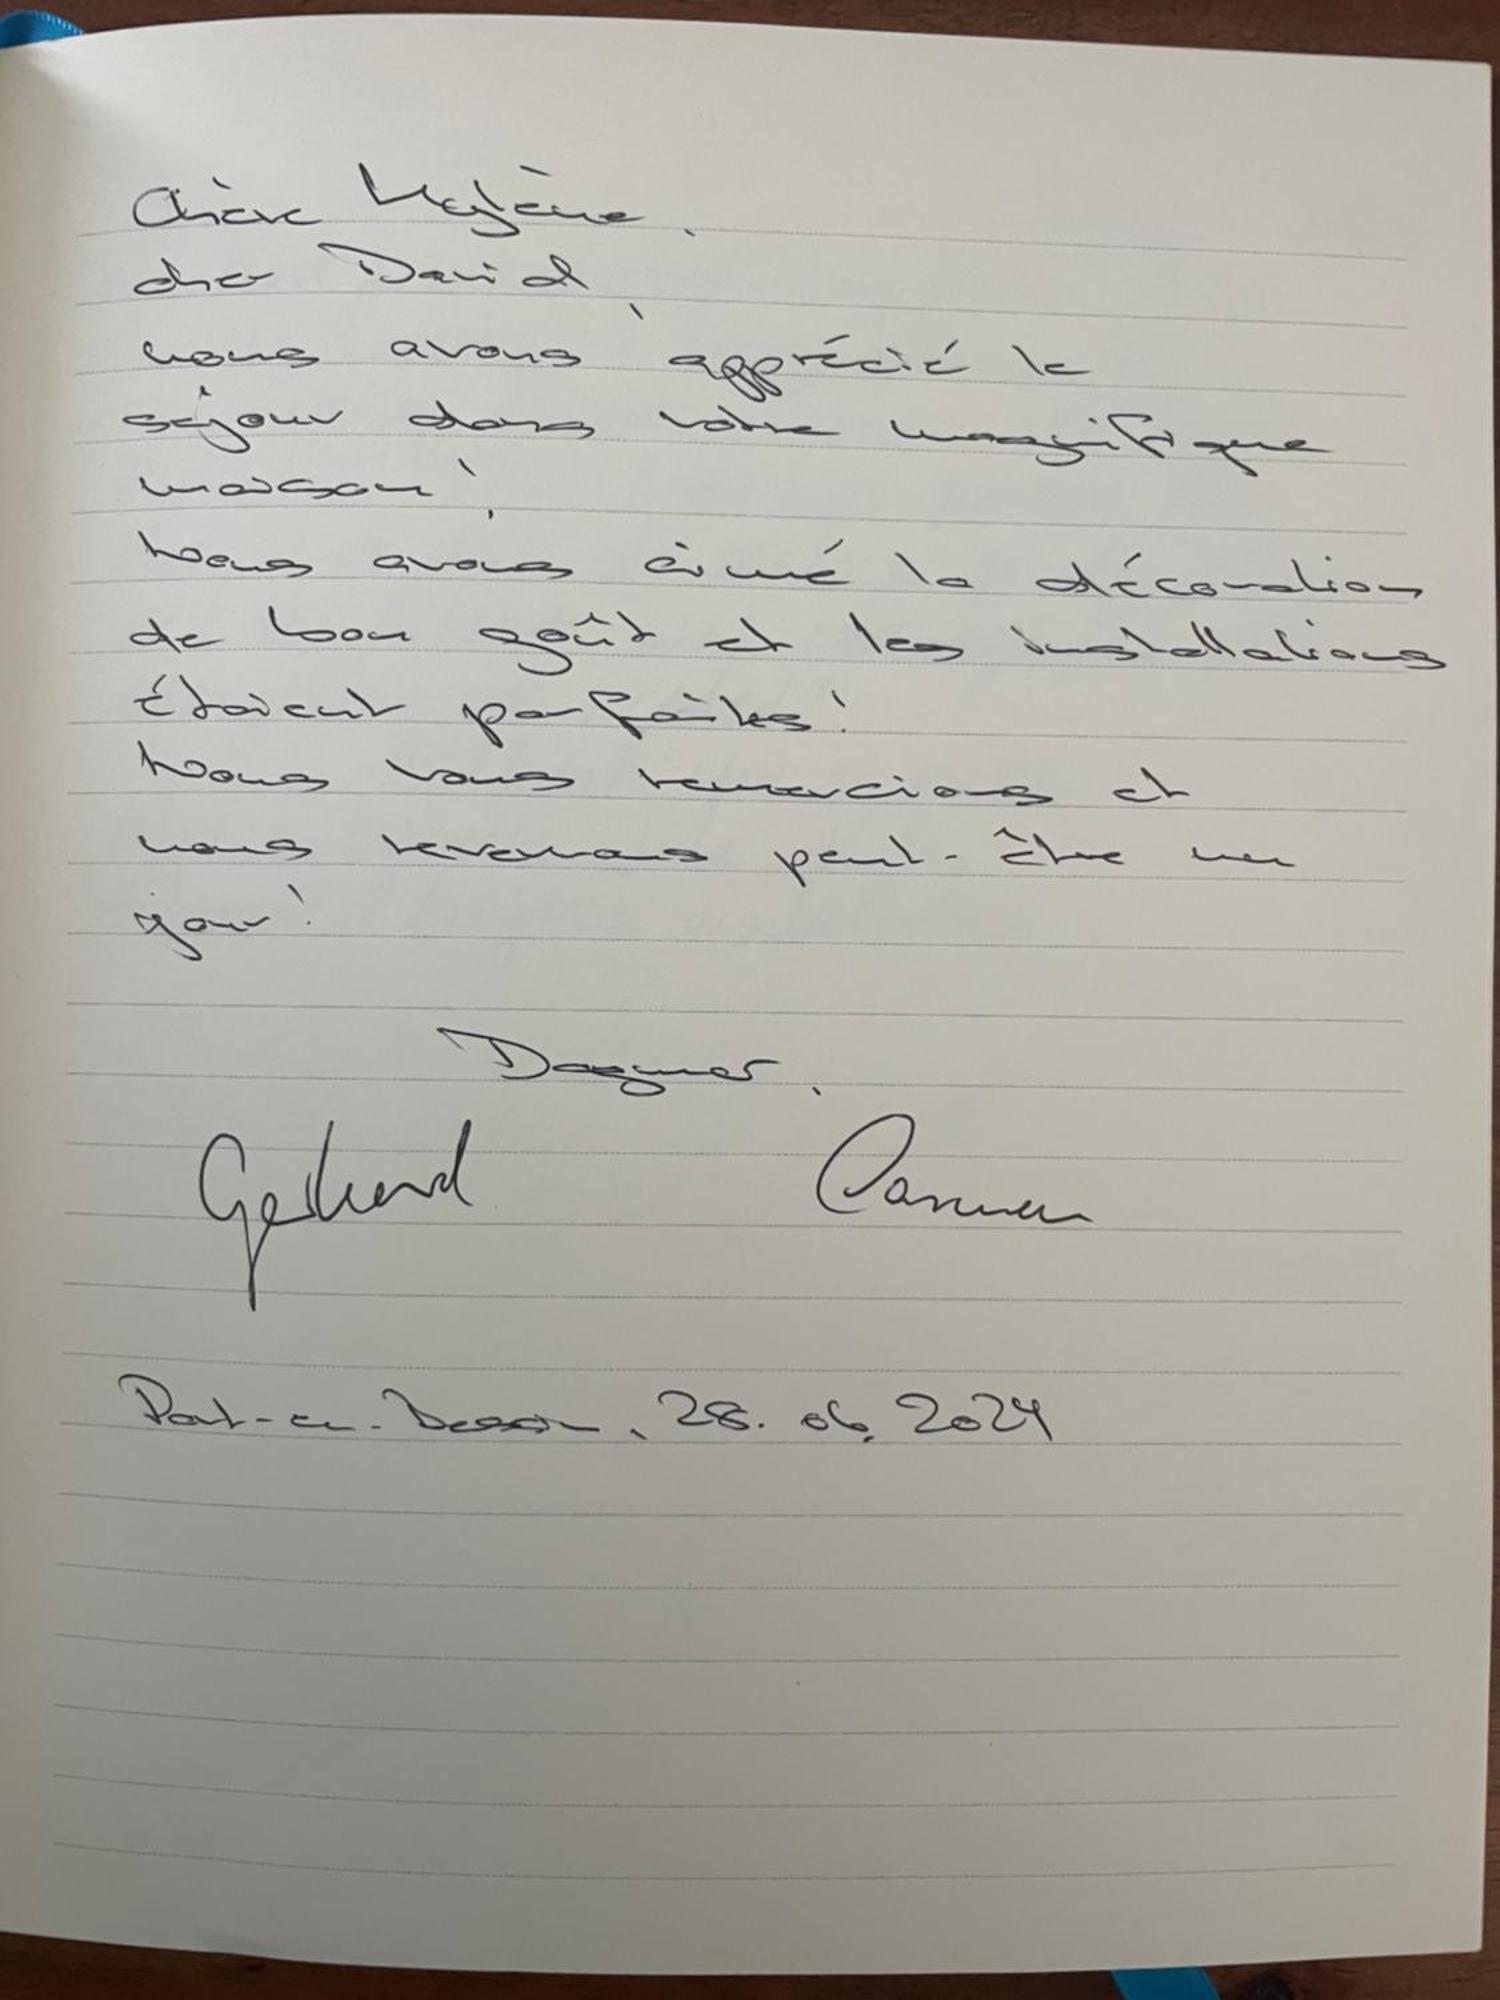 Chère Mylène,
cher David,
nous avons apprécié le
séjour dans votre magnifique
maison!
Nous avons aimé la décoration
de bon goût et les installations
étaient parfaites!
Nous vous remercions et
nous revenons peut-être un
jour!
Dagmar,
Gerhard Carmen
Port-en-Bessin, 28.06.2024